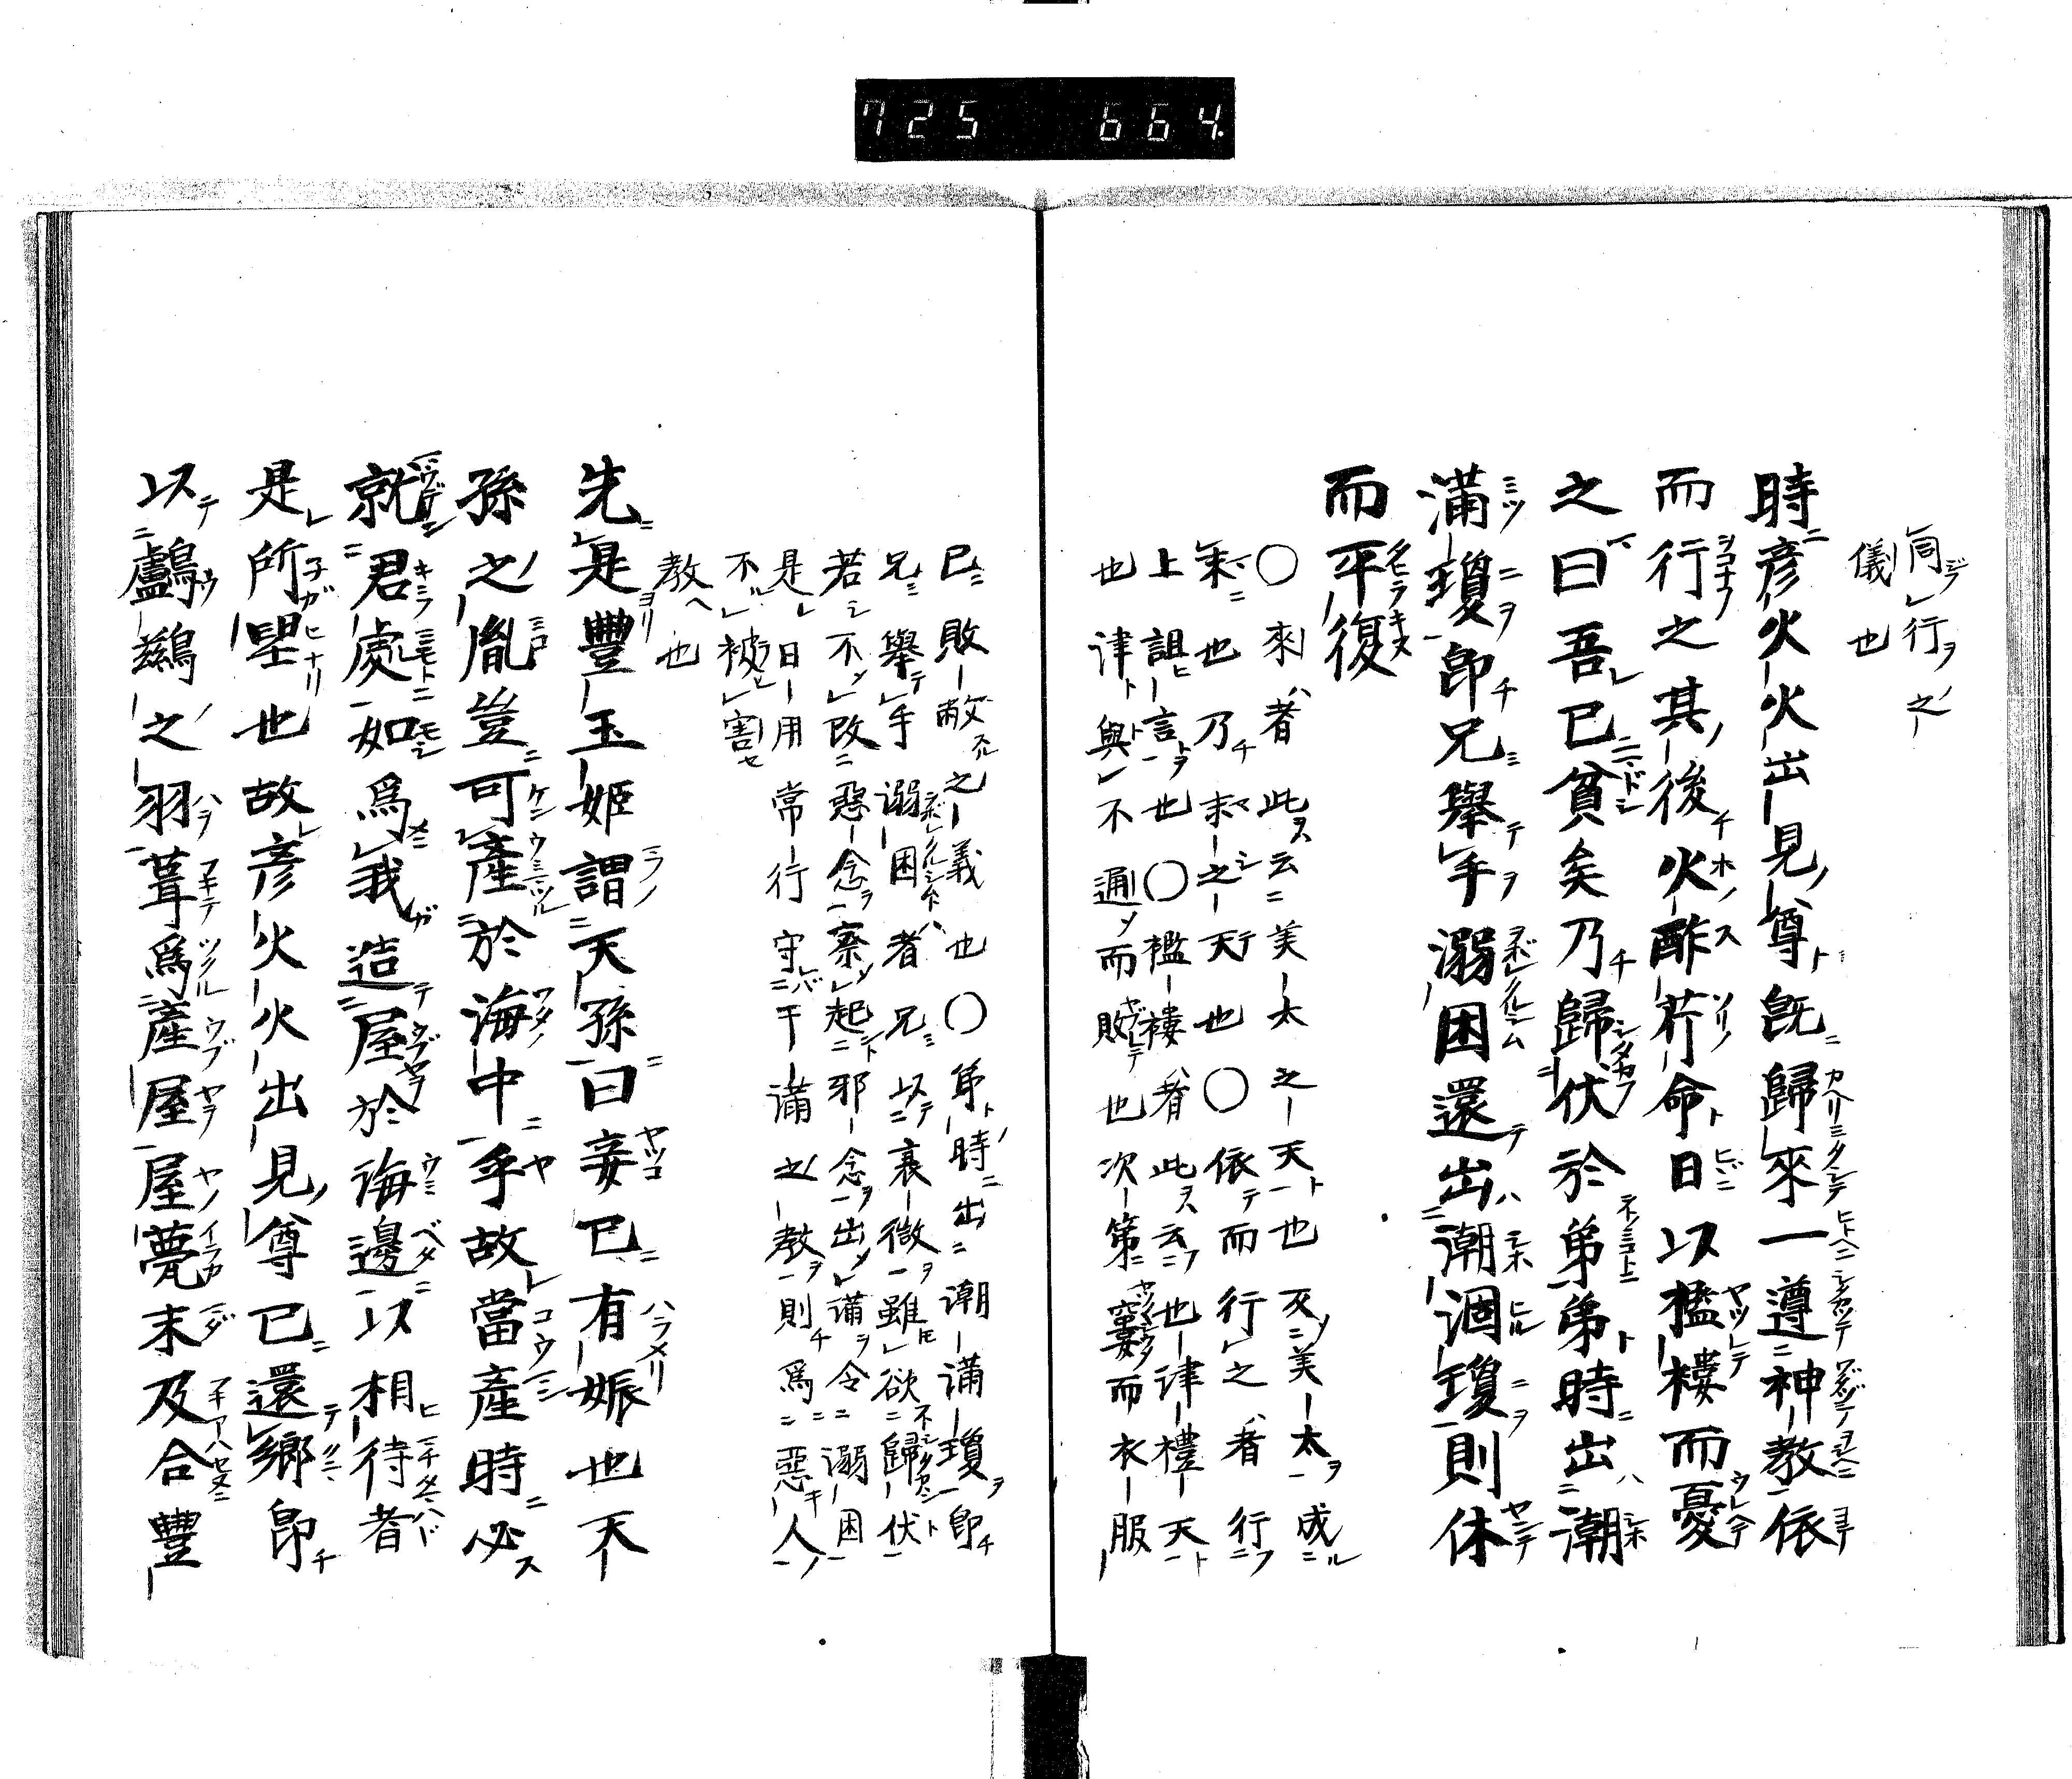 725 664.
同行之
儀也
時彦火火出見尊既歸來一遵神教依
而行之其後火酢芹命日以襤褸而憂
之曰吾已貧矣乃歸伏於弟弟時出潮
滿瓊即兄舉手溺困還出潮涸瓊則休
而平復
〇來者此云美太之天也 美太成
來也乃末之天也〇依而行之者行
上詛言也〇襤褸者此云也津禮天
也津與不通而敗也次第窶而衣服
已敗敝之義也〇弟時出潮滿瓊即
兄舉手溺困者兄以衰微雖欲歸伏
若不改惡念案起邪念出滿令溺困
是日用常行守干滿之教則爲惡人
不被割
教也
先是豐玉姬謂天孫曰妾已有娠也天
孫之胤豈可產於海中乎故當產時必
就君處如爲我造屋於海邊以相待者
是所望也故彦火火出見尊已還鄉即
以鸕鷀之羽葺爲產屋屋甍未及合豐